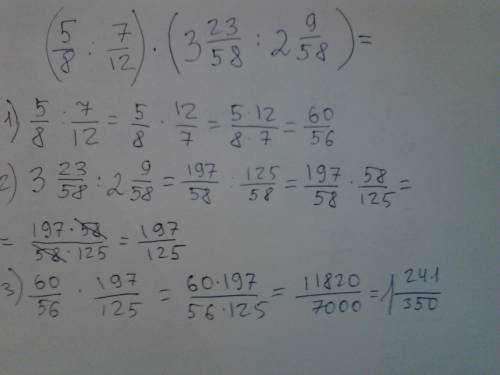 (5/8 : 7/12) · (3 23/58 : 2 9/58) =
1) 5/8 : 7/12 = 5/8 · 12/7 = 5·12/8·7 = 60/56
2) 3 23/58 : 2 9/58 = 197/58 : 125/58 = 197/58 · 58/125 =
= 197·58/58·125 = 197/125
3) 60/56 · 197/125 = 60·197/56·125 = 11820/7000 = 1 241/350